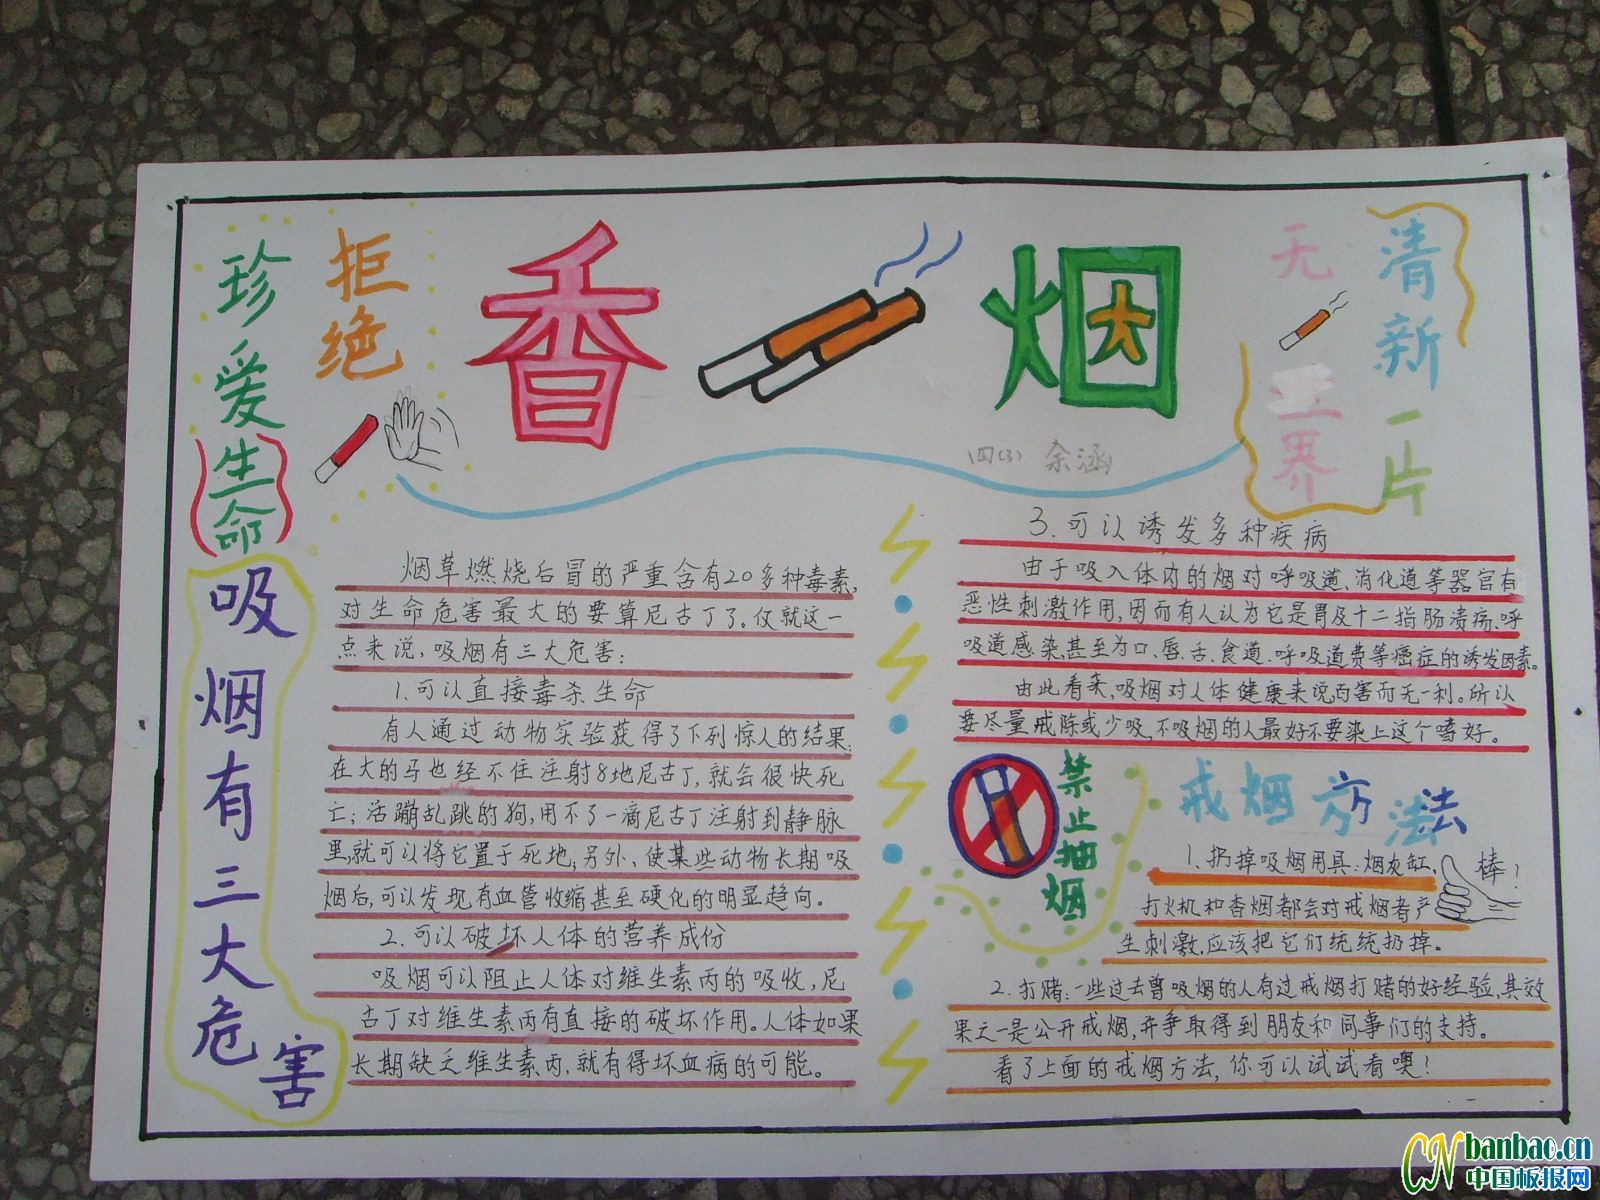 珍爱生命
拒绝
香烟
无
世界
清新一片
四(3) 余涵
吸烟有三大危害
烟草燃烧后冒的严重含有20多种毒素,
对生命危害最大的要算尼古丁了。仅就这一
点来说,吸烟有三大危害:
1.可以直接毒杀生命
有人通过动物实验获得了下列惊人的结果:
在大的马也经不住注射8地尼古丁,就会很快死
亡;活蹦乱跳的狗,用不了一滴尼古丁注射到静脉
里,就可以将它置于死地;另外、使某些动物长期吸
烟后,可以发现有血管收缩甚至硬化的明显趋向。
2.可以破坏人体的营养成份
吸烟可以阻止人体对维生素丙的吸收,尼
古丁对维生素丙有直接的破坏作用。人体如果
长期缺乏维生素丙,就有得坏血病的可能。
3.可以诱发多种疾病
由于吸入体内的烟对呼吸道、消化道等器官有
恶性刺激作用,因而有人认为它是胃及十二指肠溃疡、呼
吸道感染,甚至为口、唇、舌、食道、呼吸道费等癌症的诱发因素。
由此看来,吸烟对人体健康来说,百害而无一利。所以
要尽量戒除或少吸,不吸烟的人最好不要染上这个嗜好。
禁止抽烟
戒烟方法
1.扔掉吸烟用具:烟灰缸,
棒!
打火机和香烟都会对戒烟者产
生刺激,应该把它们统统扔掉。
2.打赌:一些过去曾吸烟的人有过戒烟打赌的好经验,其效
果之一是公开戒烟,并争取得到朋友和同事们的支持。
看了上面的戒烟方法,你可以试试看噢!
CN banbao.cn
中国板报网